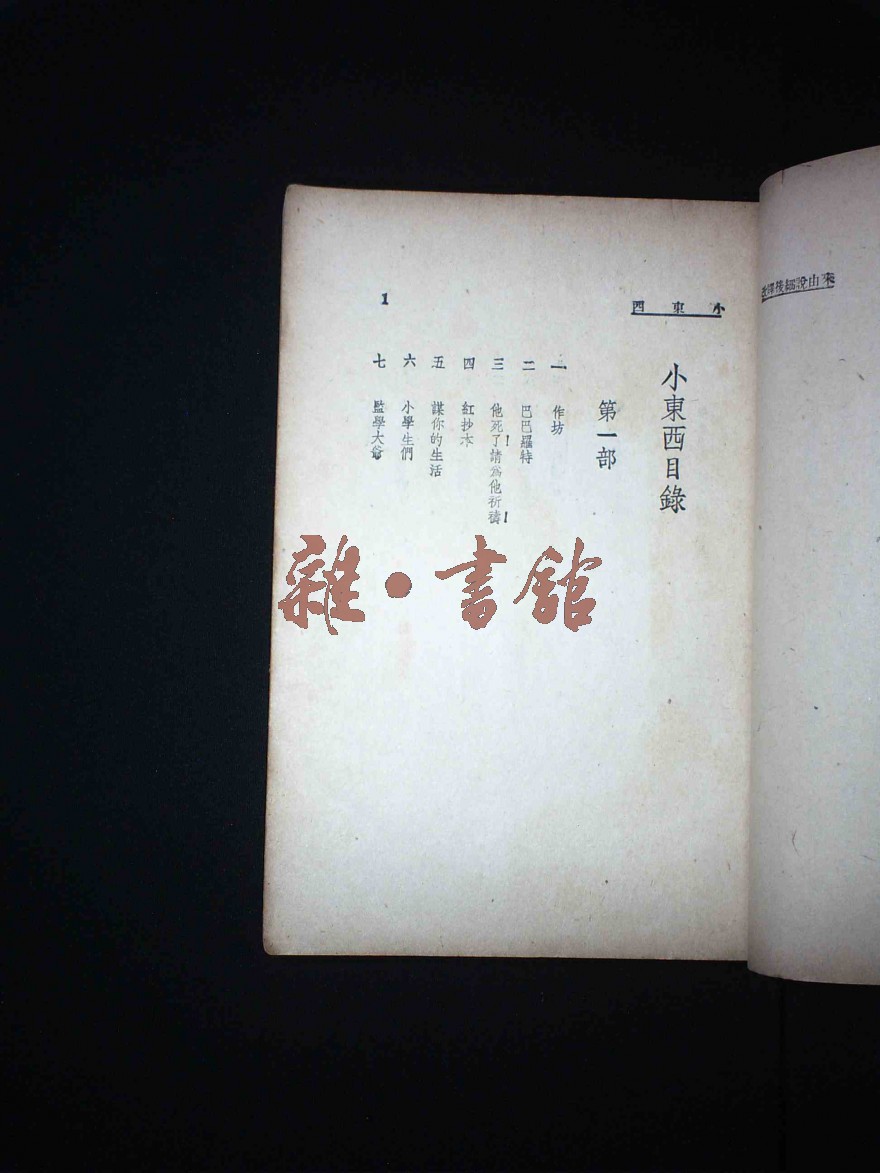 譯後細說由來
小東西
1
小東西目錄
第一部
一 作坊
二 巴巴羅特
三 他死了!請為他祈禱!
四 紅抄本
五 謀你的生活
六 小學生們
七 監學大爺
雜·書館